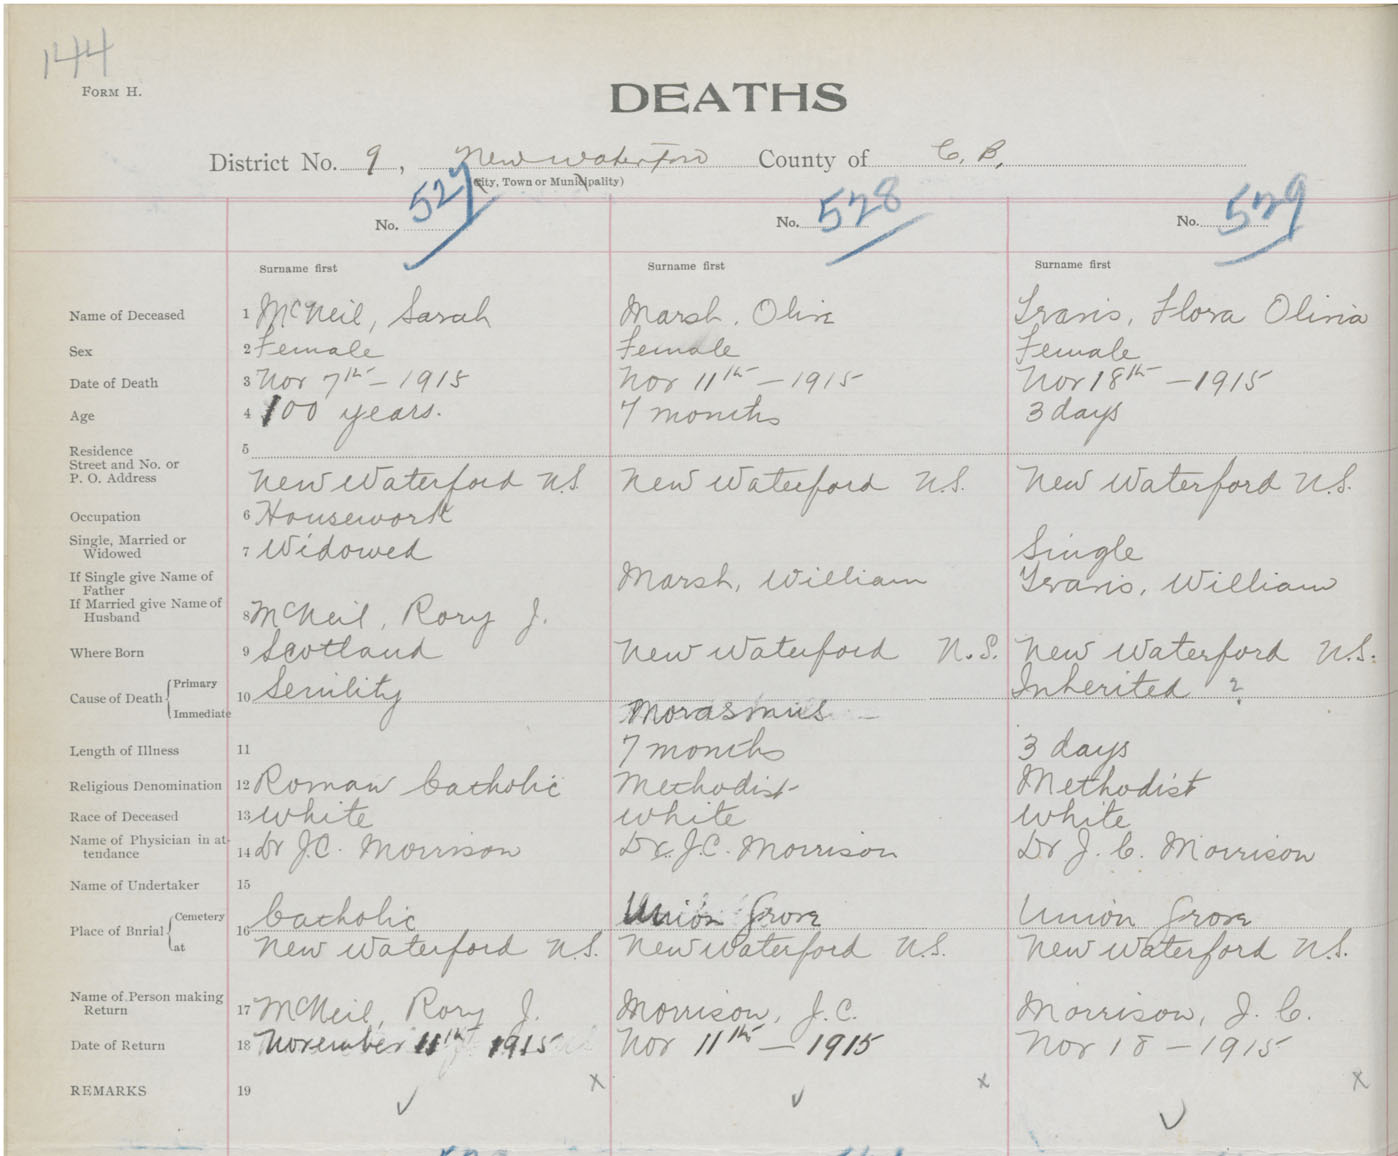 144
FORM H.
DEATHS
District No. 9, New Waterford County of C. B.
(City, Town or Municipality)
No. 527 No. 528 No. 529
Surname first Surname first Surname first
Name of Deceased 1 McNeil, Sarah Marsh, Olive Travis, Flora Olivia
Sex 2 Female Female Female
Date of Death 3 Nov 7th - 1915 Nov 11th - 1915 Nov 18th - 1915
Age 4 100 years. 7 months 3 days
Residence 5
Street and No. or
P. O. Address New Waterford N.S. New Waterford N.S. New Waterford N.S.
Occupation 6 Housework
Single, Married or
Widowed 7 Widowed Single
If Single give Name of
Father Marsh, William Travis, William
If Married give Name of
Husband 8 McNeil, Rory J.
Where Born 9 Scotland New Waterford N.S. New Waterford N.S.
Cause of Death { Primary 10 Senility Inherited ?
Immediate Morasmus
Length of Illness 11 7 months 3 days
Religious Denomination 12 Roman Catholic Methodist Methodist
Race of Deceased 13 White White White
Name of Physician in at-
tendance 14 Dr J.C. Morrison Dr. J.C. Morrison Dr J. C. Morrison
Name of Undertaker 15
Place of Bnrial { Cemetery 16 Catholic Union Grove Union Grove
at New Waterford N.S. New Waterford N.S. New Waterford N.S.
Name of Person making
Return 17 McNeil, Rory J. Morrison, J.C. Morrison, J. C.
Date of Return 18 November 11th 1915 Nov 11th - 1915 Nov 18 - 1915
REMARKS 19 x x x